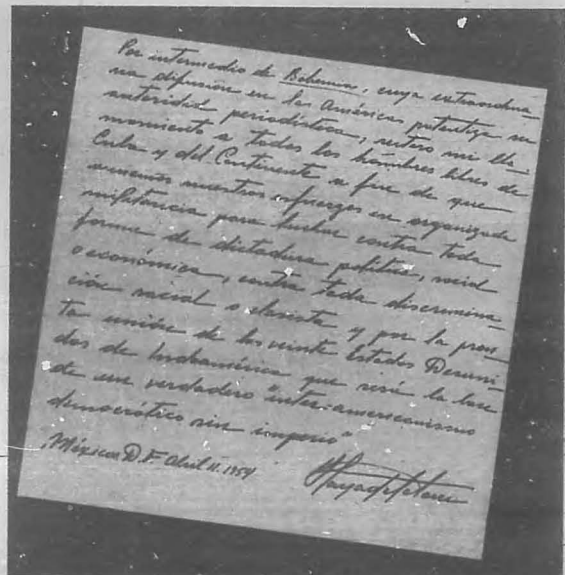 Por intermedio de Bohemia, cuya extraordina-
ria difusión en las Américas patentiza su
autoridad periodística, reitero mi lla-
mamiento a todos los hombres libres de
Cuba y del Continente a fin de que
aunemos nuestros esfuerzos en organizada
militancia para luchar contra toda
forma de dictadura política, social
o económica, contra toda discrimina-
ción racial o clasista y por la pron-
ta unión de los veinte Estados Desuni-
dos de Indoamérica que será la base
de un verdadero "inter-americanismo
democrático sin imperio"
México D.F. abril 11. 1954
Haya de la Torre